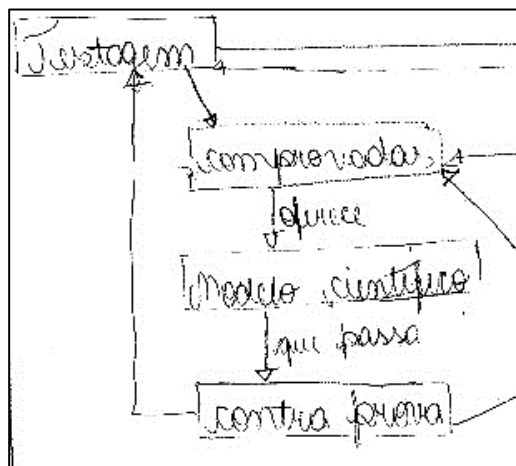 Testagem
comprovada
oferece
Modelo científico
que passa
contra prova